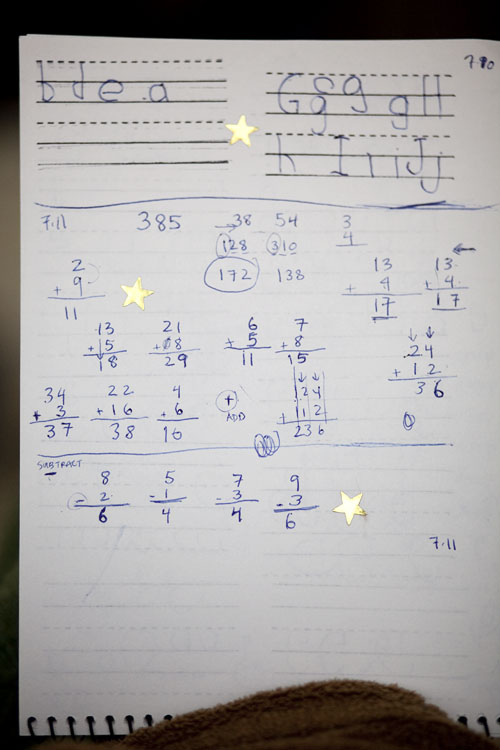 7.10
b d e a
G g g g H
h I i i J j
7.11 385 38 54 3
128 310 4
172 138
2
+ 9
11
13
+ 4
17
13
+ 4
17
13
+ 5
18
21
+ 08
29
6
+ 5
11
7
+ 8
15
24
+ 12
36
34
+ 3
37
22
+ 16
38
4
+ 6
10
+
ADD
124
+ 112
236
SUBTRACT
8
- 2
6
5
- 1
4
7
- 3
4
9
- 3
6
7.11